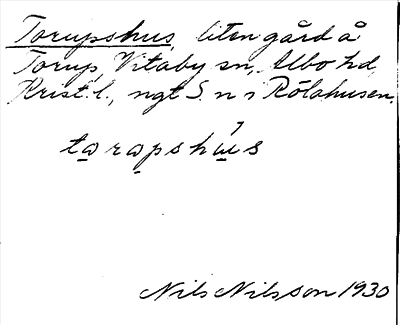 Torupshus, liten gård å
Torup, Vitaby sn, Albo hd,
Krist. l., ngt S. n
tarapshus
Nils Nilsson 1930